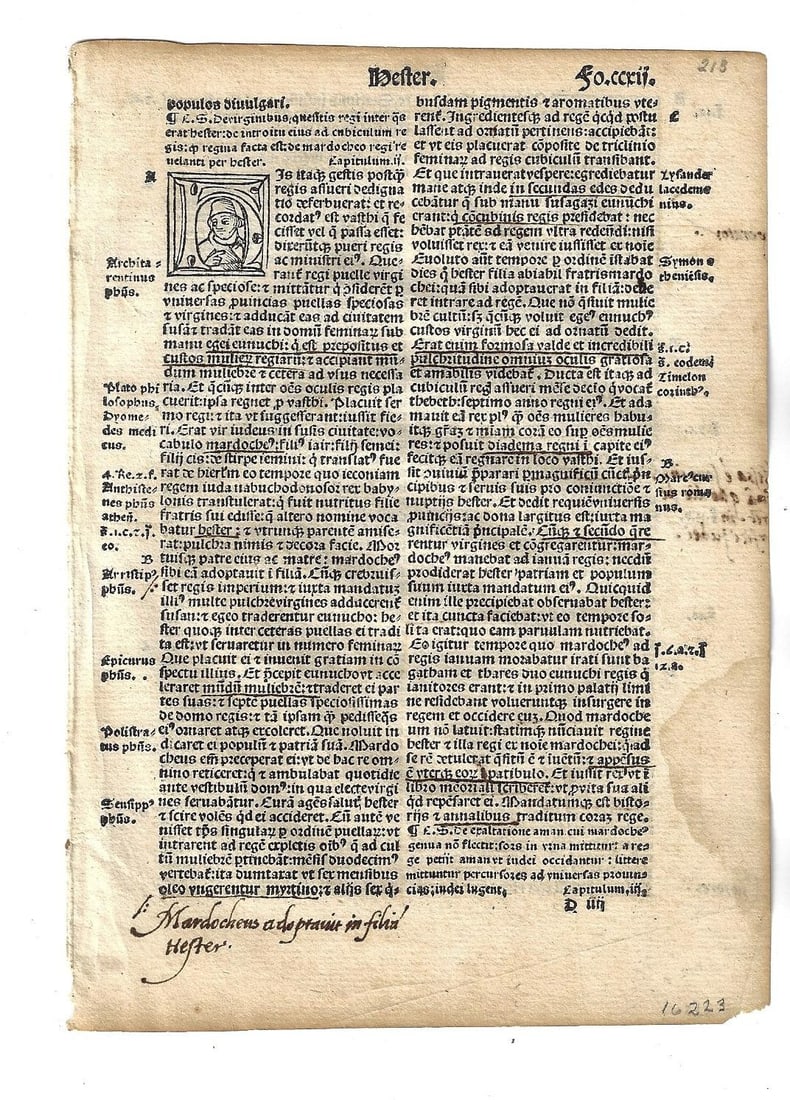 213
Hester.
Fo.ccxij.
populos diuulgari.
¶ C.S. De virginibus, quesitis regi inter q̄s
erat hester: de introitu eius ad cubiculum re
gis: q̄ regina facta est: de mardocheo regi re
uelanti per hester. Capitulum.ij.
A
HIs itaq; gestis postq̄
regis assueri dedigna
tio deferbuerat: et re-
cordatꝰ est vasthi q̄ fe
cisset vel q̄ passa esset:
dixerūtq; pueri regis
ac ministri eiꝰ. Que-
rant̄ regi puelle virgi
nes ac speciose: ⁊ mittātur q̄ cōsiderēt ꝑ
vniuersas ꝓuincias puellas speciosas
⁊ virgines: ⁊ adducāt eas ad ciuitatem
susā: ⁊ tradāt eas in domū feminaꝝ sub
manu egei eunuchi: q̄ est prepositus et
custos mulieꝝ regiarū: ⁊ accipiant mū-
dum muliebrē ⁊ cetera ad vsus necessa
ria. Et q̄cūq; inter oēs oculis regis pla
cuerit: ipsa regnet ꝓ vasthi. Placuit ser
mo regi: ⁊ ita vt suggesserant: iussit fie-
ri. Erat vir iudeus in susis ciuitate: vo-
cabulo mardocheꝰ: filiꝰ iair: filij semei:
filij cis: de stirpe iemini: q̄ translatꝰ fue
rat de hierlm̄ eo tempore quo ieconiam
regem iuda nabuchodonosor rex baby-
lonis transtulerat: q̄ fuit nutritius filie
fratris sui edisse: q̄ altero nomine voca
batur hester: ⁊ vtrunq; parentē amise-
rat: pulchra nimis ⁊ decora facie. Mor
tuisq; patre eius ac matre: mardocheꝰ
sibi eā adoptauit ī filiā. Cūq; crebruis-
set regis imperium: ⁊ iuxta mandatuꝫ
illiꝰ multe pulchre virgines adducerent̄
susan: ⁊ egeo traderentur eunucho: he-
ster quoq; inter ceteras puellas ei tradi
ta est: vt seruaretur in numero feminaꝝ
Que placuit ei ⁊ inuenit gratiam in cō
spectu illius. Et p̄cepit eunucho vt acce
leraret mūdū muliebrē: ⁊ traderet ei par
tes suas: ⁊ septē puellas speciosissimas
de domo regis: ⁊ tā ipsam q̄ pedisseq̄s
eiꝰ ornaret atq; excoleret. Que noluit in
dicare ei populū ⁊ patriā suā. Mardo
cheus em̄ preceperat ei: vt de hac re om-
nino reticeret: q̄ ⁊ ambulabat quotidie
ante vestibulū domꝰ: in qua electe virgi
nes seruabātur. Curā agēs salutꝭ hester
⁊ scire volēs qd ei accideret. Cū autē ve
nisset tp̄s singularꝝ ꝑ ordinē puellaꝝ: vt
intrarent ad regē expletis oībꝰ q̄ ad cul
tū muliebrē ꝑtinebāt: mēsis duodecimꝰ
vertebat̄: ita dumtaxat vt sex mensibus
oleo vngerentur myrtino: ⁊ alijs sex q̄-
Archita-
rentinus
phūs.
Plato phi
losophus.
Dyome-
des medi
cus.
4.Re.24.
Anthiste-
nes phūs
athen̄.
B
Arristipꝰ
phūs.
Epicurus
phūs.
Polistra-
tus phūs.
Seusippꝰ
phūs.
busdam pigmentis ⁊ aromatibus vte-
rent̄. Ingredientesq; ad regē qcqd postu
lassent ad ornatū pertinens: accipiebāt:
et vt eis placuerat cōposite de triclinio
feminaꝝ ad regis cubiculū transibant.
Et que intrauerat vespere: egrediebatur
mane atq; inde in secundas edes dedu
cebātur q̄ sub manu susagazi eunuchi
erant: q̄ cōcubinis regis presidebat: nec
hēbat ptātē ad regem vltra redeūdi: nisi
voluisset rex: ⁊ eā venire iussisset ex noīe
Euoluto aūt tempore ꝑ ordinē īstabat
dies q̄ hester filia abiahil fratris mardo
chei: quā sibi adoptauerat in filiā: debe
ret intrare ad regē. Que nō q̄siuit mulie
brē cultū: sꝫ q̄cūq; voluit egeꝰ eunuchꝰ
custos virginū hec ei ad ornatū dedit.
Erat enim formosa valde et incredibili
pulchritudine omniuꝫ oculis gratiosa
et amabilis videbat̄. Ducta est itaq; ad
cubiculū regꝭ assueri mēse decīo q̄ vocat̄
thebeth: septimo anno regni eiꝰ. Et ada
mauit eā rex plꝰ q̄ oēs mulieres habu-
itq; gr̄az ⁊ miam corā eo sup̄ oēs mulie
res: ⁊ posuit diadema regni ī capite eiꝰ
fecitq; eā regnare in loco vasthi. Et ius-
sit cōuiuiū p̄parari ꝑmagnificū cūctꝭ prī
cipibus ⁊ seruis suis pro coniunctiōe ⁊
nuptijs hester. Et dedit requiē vniuersis
ꝓuincijs: ac dona largitus est: iuxta ma
gnificētiā prīcipalē. Cūq; ⁊ secūdo q̄re
rentur virgines et cōgregarentur: mar-
docheꝰ manebat ad ianuā regis: necdū
prodiderat hester patriam et populum
suum iuxta mandatum eiꝰ. Quicquid
enim ille precipiebat obseruabat hester:
et ita cuncta faciebat: vt eo tempore so-
lita erat: quo eam paruulam nutriebat.
Eo igitur tempore quo mardocheꝰ ad
regis ianuam morabatur irati sunt ba
gathan et thares duo eunuchi regis q̄
ianitores erant: ⁊ in primo palatij limi
ne residebant volueruntq; insurgere in
regem et occidere euꝫ. Quod mardoche
um nō latuit: statimq; nūciauit regine
hester ⁊ illa regi ex noīe mardochei: q̄ ad
se rē detulerat q̄situ3 ē ⁊ iuētū: ⁊ appēsus
ē vterq; eoꝝ ī patibulo. Et iussit rex: vt ī
libro memoriali scriberet̄: vt ꝓ vita sua ali
qd repēsaret ei. Mandatumq; est histo-
rijs ⁊ annalibus traditum coraꝫ rege.
¶ C.S. De exaltatione aman cui mardocheꝰ
genua nō flectit: sors in vrna mittitur: a re-
ge petijt aman vt iudei occidantur: littere
mittuntur per cursores ad vniuersas prouin-
cias: iudei lugent. Capitulum.iij.
D iiij
Lysander
lacedemo
nius.
Symon a
theniēsis.
Timelon
corinthꝰ.
B
Mar. cur
sius roma
nus.
Mardocheus adoptauit in filiā
Hester.
16223